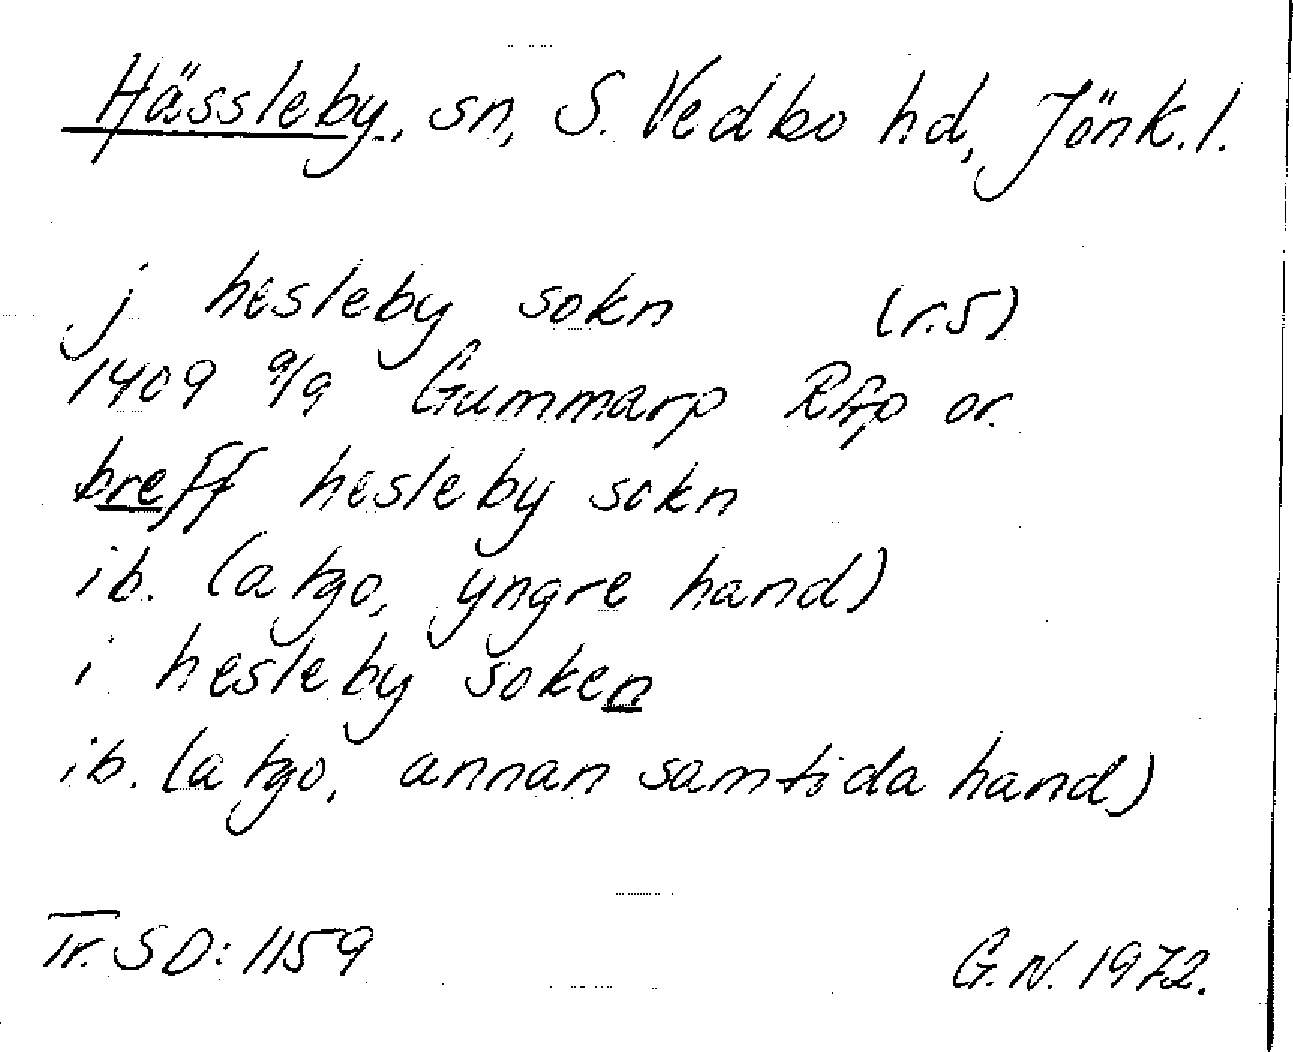 Hässleby, sn, S. Vedbo hd, Jönk. l.
j hesleby sokn (r. 5)
1409 9/9 Gummarp RAp or.
breff hesleby sokn
ib. (a tgo, yngre hand)
i hesleby soken
ib. (a tgo, annan samtida hand)
Tr. SD: 1159 G.N. 1972.